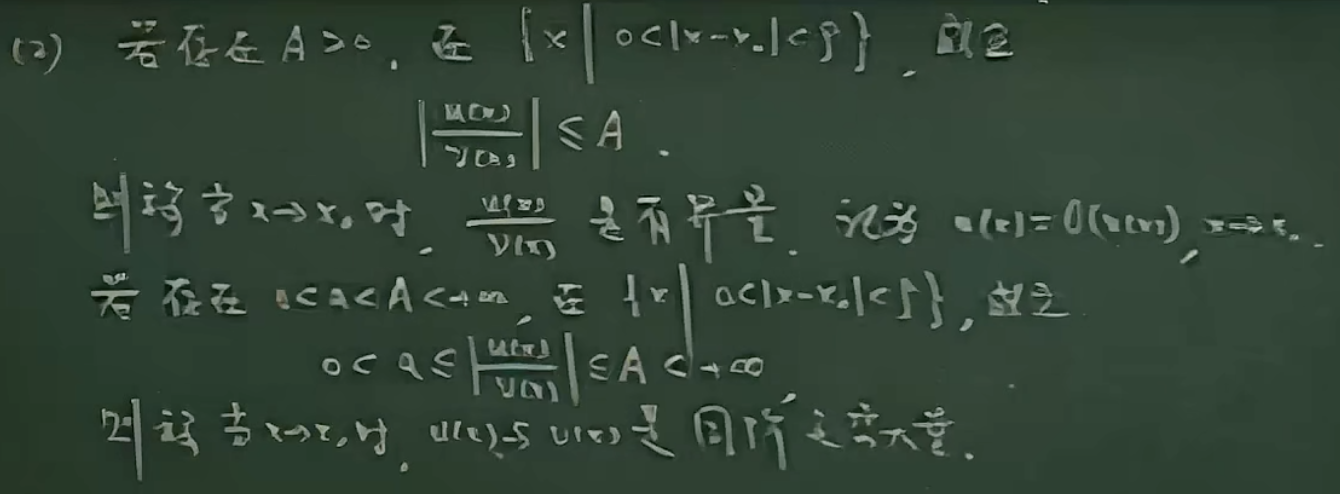 (2) 若存在 A>0, 在 {x | 0<|x-x₀|<ρ}, 成立
|u(x)/v(x)| ≤ A.
则称当 x→x₀ 时, u(x)/v(x) 是有界量. 记为 u(x)=O(v(x)), x→x₀.
若存在 0<a<A<+∞, 在 {x | 0<|x-x₀|<ρ}, 成立
0< a ≤ |u(x)/v(x)| ≤ A <+∞
则称当 x→x₀ 时, u(x)与 v(x) 是同阶无穷大量.